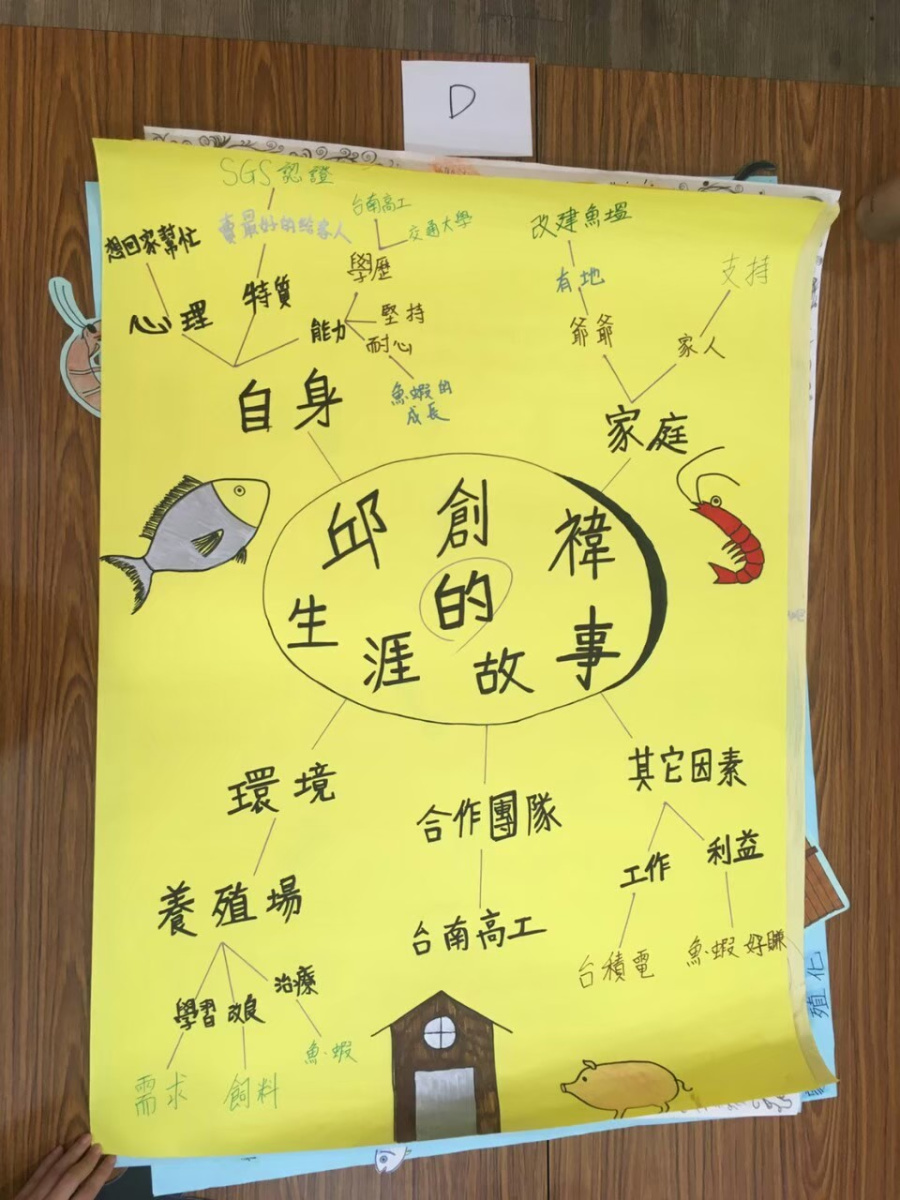 D
SGS認證
賣最好的給家人
想回家幫忙
心理
特質
能力
台南高工
交通大學
學歷
堅持
耐心
魚蝦的
成長
自身
改建魚塭
有地
爺爺
支持
家人
家庭
邱創禕
的
生涯故事
環境
養殖場
學習
改良
治療
需求
飼料
魚蝦
合作團隊
台南高工
其它因素
工作
利益
台積電
魚蝦好賺
殖化